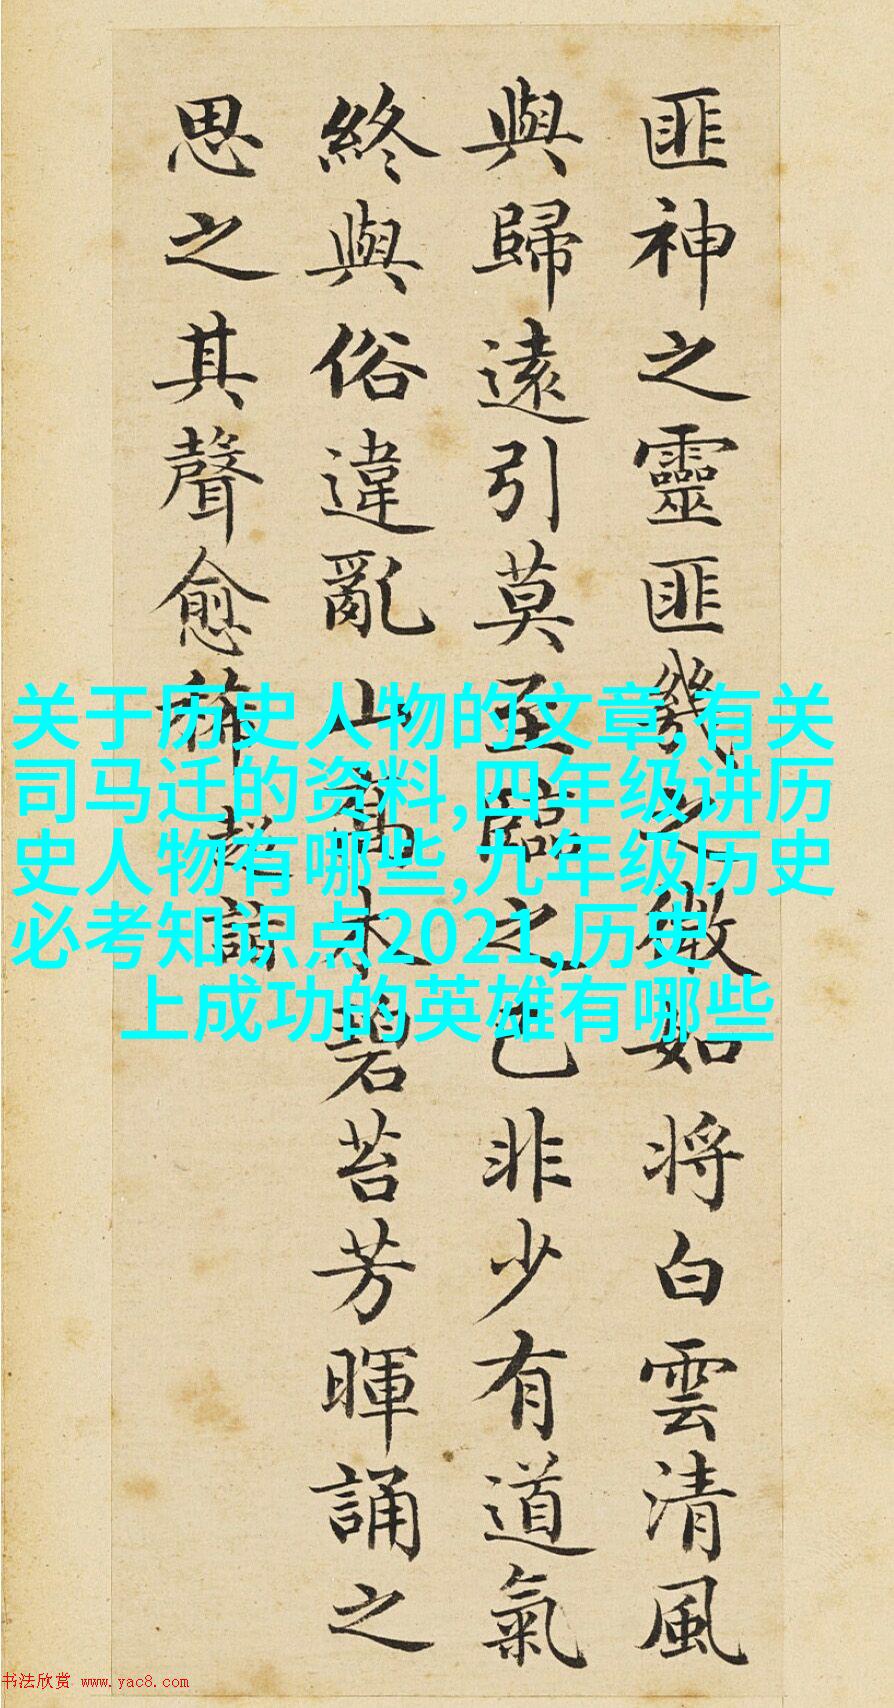 匪神之靈匪幾之微如將白雲清風
與歸遠引莫至臨之已非少有道氣
終與俗違亂山喬木碧苔芳暉誦之
思之其聲愈稀超詣
关于历史人物的文章,有关
司马迁的资料,四年级讲历
史人物有哪些,九年级历史
必考知识点2021,历史
上成功的英雄有哪些
书法欣赏 www.yac8.com